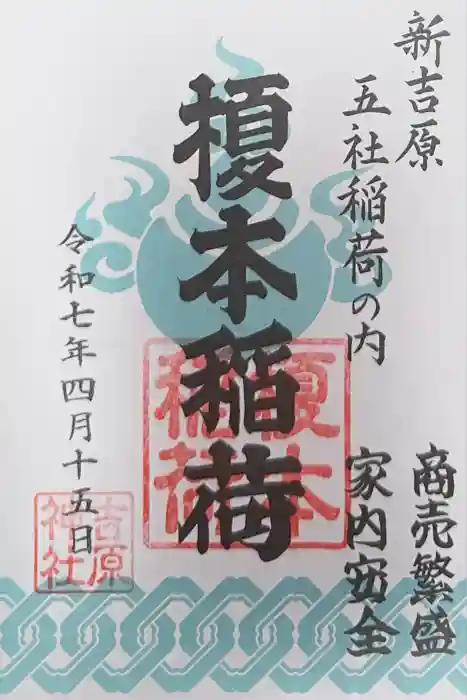 新吉原
五社稲荷の内
商売繁盛
家内安全
榎本稲荷
榎本稲荷
令和七年四月十五日
吉原神社